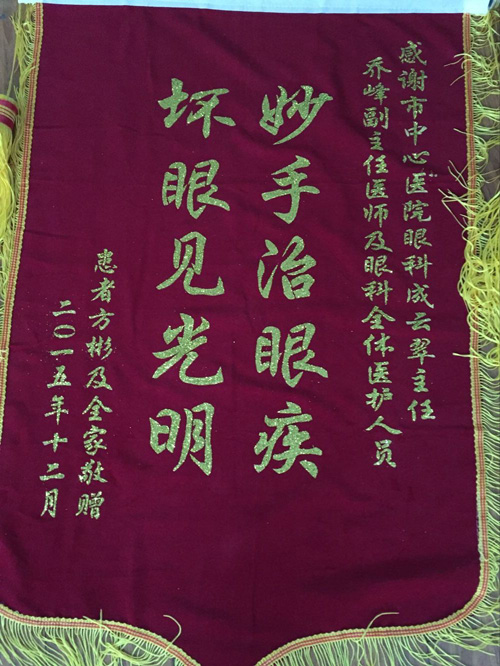 感谢市中心医院眼科成云翠主任
乔峰副主任医师及眼科全体医护人员
妙手治眼疾
坏眼见光明
患者方彬及全家敬赠
二〇一五年十二月